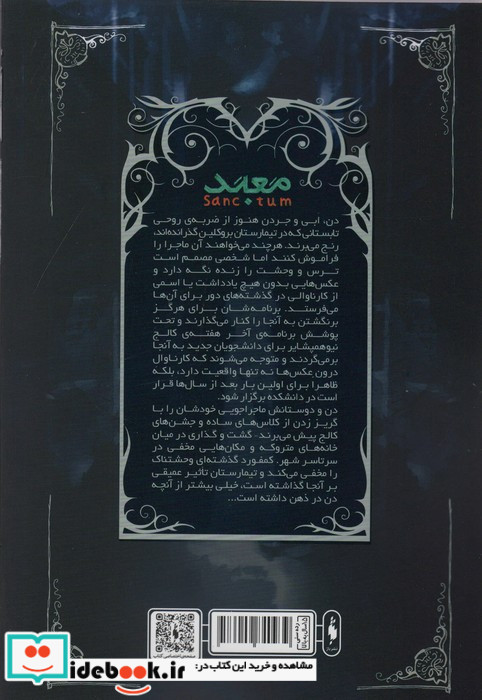 معبد
Sanc.tum
دن، ابی و جردن هنوز از ضربه‌ی روحی
تابستانی که در تیمارستان بروکلین گذرانده‌اند،
رنج می‌برند. هرچند می‌خواهند آن ماجرا را
فراموش کنند اما شخصی مصمم است
ترس و وحشت را زنده نگه دارد و
عکس‌هایی بدون هیچ یادداشت یا اسمی
از کارناوالی در گذشته‌های دور برای آن‌ها
می‌فرستد. برنامه‌شان برای هرگز
برنگشتن به آنجا را کنار می‌گذارند و تحت
پوشش برنامه‌ی آخر هفته‌ی کالج
نیوهمپشایر برای دانشجویان جدید به آنجا
برمی‌گردند و متوجه می‌شوند که کارناوال
درون عکس‌ها نه تنها واقعیت دارد، بلکه
ظاهرا برای اولین بار بعد از سال‌ها قرار
است در دانشکده برگزار شود.
دن و دوستانش ماجراجویی خودشان را با
گریز زدن از کلاس‌های ساده و جشن‌های
کالج پیش می‌برند- گشت و گذاری در میان
خانه‌های متروکه و مکان‌هایی مخفی در
سرتاسر شهر. کمفورد گذشته‌ای وحشتناک
را مخفی می‌کند و تیمارستان تأثیر عمیقی
بر آنجا گذاشته است، خیلی بیشتر از آنچه
دن در ذهن داشته است...
رده سنی
۱۵ سال به بالا
صفحه‌ی اختصاصی کتاب
idebook.ir
مشاهده و خرید این کتاب در: